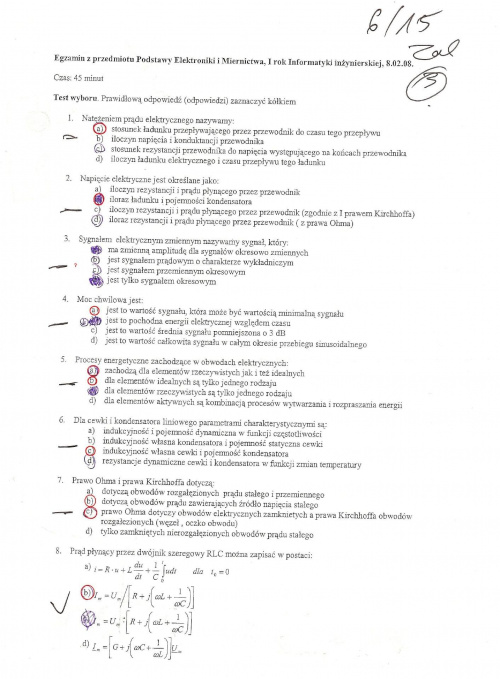 6/15
Zal
3
Egzamin z przedmiotu Podstawy Elektroniki i Miernictwa, I rok Informatyki inżynierskiej, 8.02.08.
Czas: 45 minut
Test wyboru. Prawidłową odpowiedź (odpowiedzi) zaznaczyć kółkiem
1. Natężeniem prądu elektrycznego nazywamy:
a) stosunek ładunku przepływającego przez przewodnik do czasu tego przepływu
b) iloczyn napięcia i konduktancji przewodnika
c) stosunek rezystancji przewodnika do napięcia występującego na końcach przewodnika
d) iloczyn ładunku elektrycznego i czasu przepływu tego ładunku
2. Napięcie elektryczne jest określane jako:
a) iloczyn rezystancji i prądu płynącego przez przewodnik
iloraz ładunku i pojemności kondensatora
c) iloczyn rezystancji i prądu płynącego przez przewodnik (zgodnie z I prawem Kirchhoffa)
d) iloraz rezystancji i prądu płynącego przez przewodnik ( z prawa Ohma)
3. Sygnałem elektrycznym zmiennym nazywamy sygnał, który:
ma zmienną amplitudę dla sygnałów okresowo zmiennych
b) jest sygnałem prądowym o charakterze wykładniczym
? c) jest sygnałem przemiennym okresowym
jest tylko sygnałem okresowym
4. Moc chwilowa jest:
a) jest to wartość sygnału, która może być wartością minimalną sygnału
jest to pochodna energii elektrycznej względem czasu
c) jest to wartość średnia sygnału pomniejszona o 3 dB
d) jest to wartość całkowita sygnału w całym okresie przebiegu sinusoidalnego
5. Procesy energetyczne zachodzące w obwodach elektrycznych:
a) zachodzą dla elementów rzeczywistych jak i też idealnych
b) dla elementów idealnych są tylko jednego rodzaju
dla elementów rzeczywistych są tylko jednego rodzaju
d) dla elementów aktywnych są kombinacją procesów wytwarzania i rozpraszania energii
6. Dla cewki i kondensatora liniowego parametrami charakterystycznymi są:
a) indukcyjność i pojemność dynamiczna w funkcji częstotliwości
b) indukcyjność własna kondensatora i pojemność statyczna cewki
c) indukcyjność własna cewki i pojemność kondensatora
d) rezystancje dynamiczne cewki i kondensatora w funkcji zmian temperatury
7. Prawo Ohma i prawa Kirchhoffa dotyczą:
a) dotyczą obwodów rozgałęzionych prądu stałego i przemiennego
b) dotyczą obwodów prądu zawierających źródło napięcia stałego
c) prawo Ohma dotyczy obwodów elektrycznych zamkniętych a prawa Kirchhoffa obwodów
rozgałęzionych (węzeł , oczko obwodu)
d) tylko zamkniętych nierozgałęzionych obwodów prądu stałego
8. Prąd płynący przez dwójnik szeregowy RLC można zapisać w postaci:
a) i = R · u + L du/dt + 1/C ∫udt dla t₀ = 0
b) Iₘ = Uₘ / [R + j(ωL + 1/ωC)]
Iₘ = Uₘ · [R + j(ωL + 1/ωC)]
d) Iₘ = [G + j(ωC + 1/ωL)]Uₘ